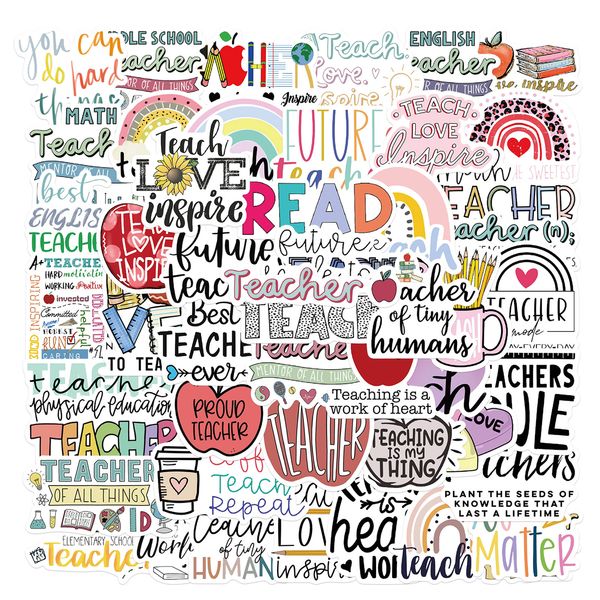 you can
do hard
things
MATH
Teach
MENTOR OF ALL THINGS
best
ENGLIS
TEACHE
A+ TEACHE
HARD motivatin
WORKING Positive
INSPIRING
invested
Committed
HONEST
FUN
CARING
DLE SCHOOL
teacher
MENTOR OF ALL THINGS
HER
Teach
love
inspire
ENGLISH
Teacher
MENTOR OF ALL THINGS
inspire
Inspire
FUTURE
TEACH
LOVE
Inspire
Teach
LOVE
inspire
future
READ
future
THE SWEETEST
TEACHER
teacher (n);
TEACH
LOVE
INSPIRE
teac
Best
TEACHE
ever
Teacher
TEACH
Teacher
MENTOR OF ALL THINGS
eacher
of tiny
humans
TEACHER
mode
TO TEA
teache
physical education
PROUD
TEACHER
TEACHER
Teaching is a
work of heart
TEACHING
IS MY
THING
LOVE
TEACHERS
RULE
teachers
TEACHER
TEACHER
OF ALL THINGS
ELEMENTARY SCHOOL
Teache
Work
Teach
Repeat
Teache
of tiny
HUMAN
LO
inspir
is
hea
wor
teach
PLANT THE SEEDS OF
KNOWLEDGE THAT
LAST A LIFETIME
Matter